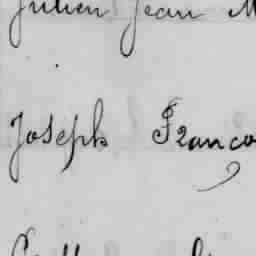 Julien Jean M
Joseph Franco